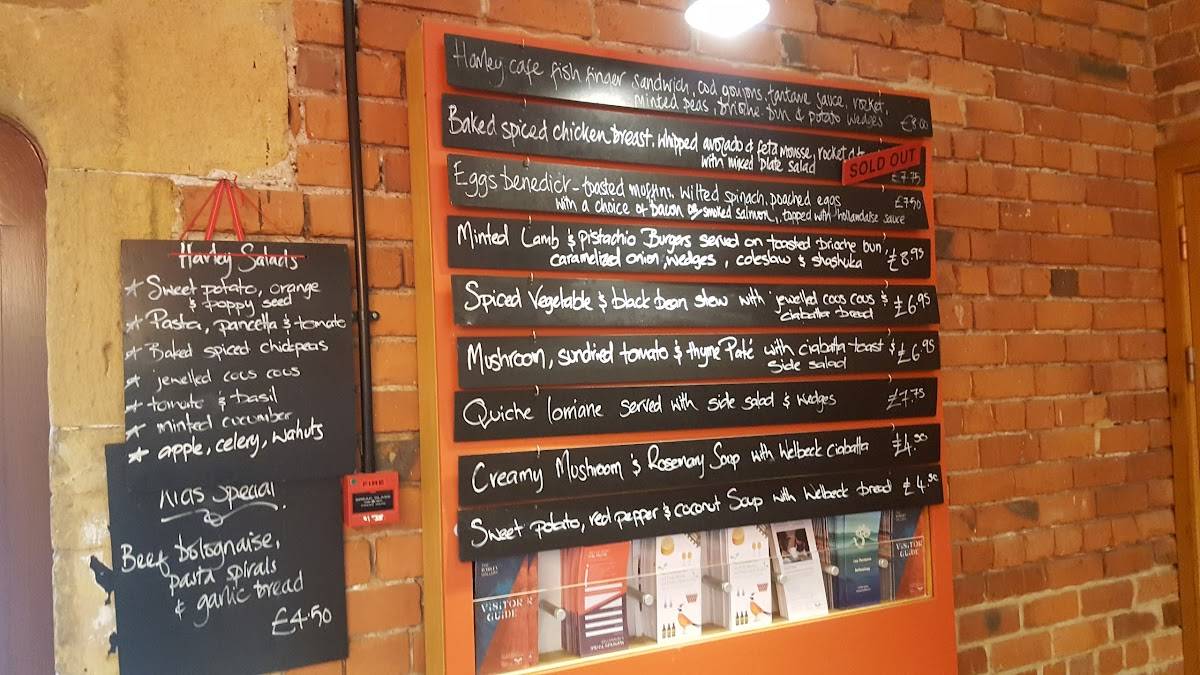 Harley Salads
* Sweet potato, orange
& poppy seed
* Pasta, pancetta & tomato
* Baked spiced chickpeas
* jewelled cous cous
* tomato & basil
* minted cucumber
* apple, celery, walnuts
Kids Special
Beef bolognaise,
pasta spirals
& garlic bread
£4.50
FIRE
Harley cafe fish finger sandwich, cod goujons, tartare sauce, rocket,
minted peas, brioche bun & potato wedges £8.00
Baked spiced chicken breast, whipped avocado & feta mousse, rocket
with mixed plate salad £7.75
SOLD OUT
Eggs benedict - toasted muffins, wilted spinach, poached eggs £7.50
with a choice of bacon or smoked salmon, topped with hollandaise sauce
Minted Lamb & pistachio Burgers served on toasted brioche bun,
caramelized onion, wedges, coleslaw & shashuka £8.95
Spiced Vegetable & black bean stew with jewelled cous cous &
ciabatta bread £6.95
Mushroom, sundried tomato & thyme Paté with ciabatta toast &
side salad £6.95
Quiche lorriane served with side salad & wedges £7.75
Creamy Mushroom & Rosemary Soup with Welbeck Ciabatta £4.50
Sweet potato, red pepper & coconut Soup with Welbeck bread £4.50
VISITOR
GUIDE
VISITOR
GUIDE